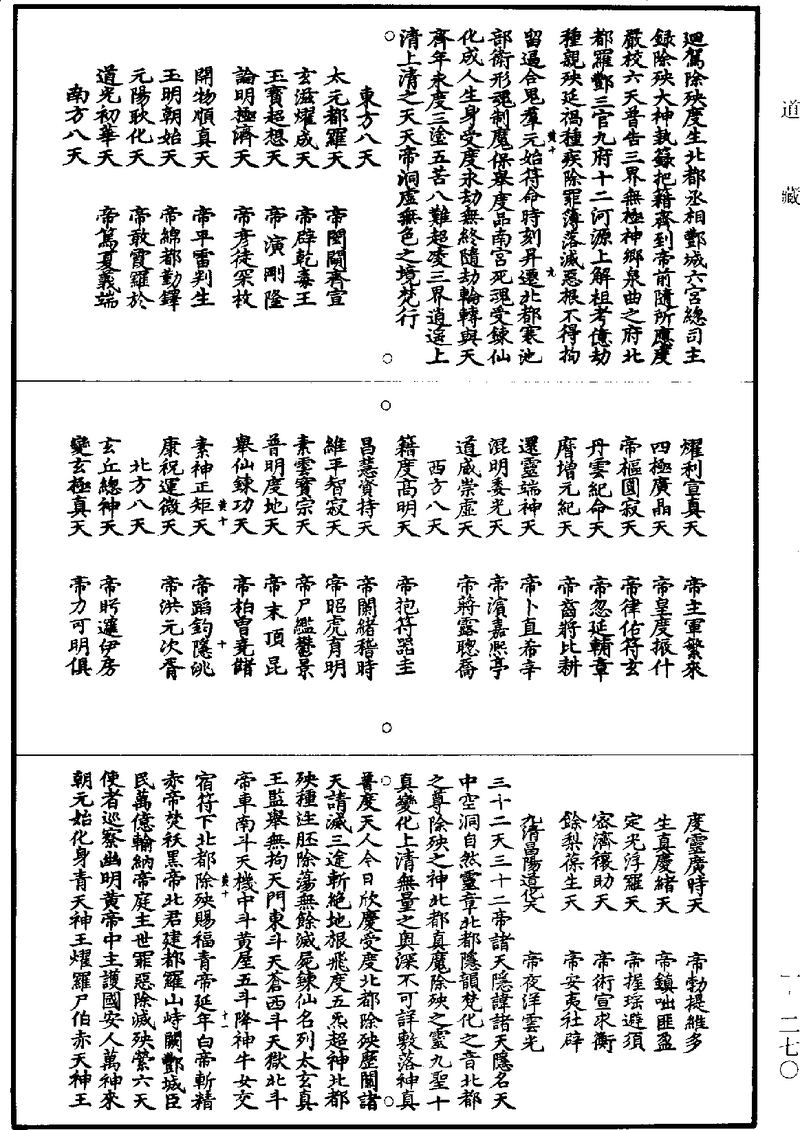 道藏
迴駕除殃度生北都丞相酆城六宮總司主
錄除殃大神執籙把籍齊到帝前隨所應度
嚴校六天普告三界無極神鄉泉曲之府北
都羅酆三官九府十二河源上解祖考億劫
種親殃延禍種疾除罪簿落滅惡根不得拘
留逼合鬼羣元始符命時刻昇遷北都寒池
部衛形魂制魔保舉度品南宮死魂受鍊仙
化成人生身受度永劫無終隨劫輪轉與天
齊年永度三塗五苦八難超凌三界逍遥上
清上清之天天帝洞虛無色之境梵行
東方八天
太元都羅天　帝閏闢齊宣
玄滋燿成天　帝辟乾毒王
玉寶超想天　帝演剛隆
論明極濟天　帝彥徒罙枚
開物順真天　帝平雷判生
玉明朝始天　帝綿都勤鐸
元陽耿化天　帝敢霞羅於
道光初華天　帝篤夏義端
南方八天
燿利宣真天　帝主軍繁來
四極廣晶天　帝皇度振什
帝樞圓寂天　帝律佑符玄
丹雲紀命天　帝忽延輔章
膺增元紀天　帝奮將比耕
還靈端神天　帝卜直希辛
混明委光天　帝濱嘉熙亭
道威崇虛天　帝蔣露聰喬
西方八天
籍度高明天　帝抱符器圭
昌慧資持天　帝闕緒稽時
維平智寂天　帝昭虎育明
素雲寶宗天　帝尸鑑鬱景
普明度地天　帝末頂昆
舉仙鍊功天　帝柏曾堯儲
素神正矩天　帝蹈鈞隱洮
康祝運微天　帝洪元次胥
北方八天
玄丘總神天　帝眄邏伊房
變玄極真天　帝力可明俱
度靈廣時天　帝勃提維多
生真慶緒天　帝鎮咄匪盈
定光浮羅天　帝握瑤避須
密濟禳助天　帝術宣求衡
餘梨葆生天　帝安夷社辟
九清昌陽道化天　帝夜洋雲光
三十二天三十二帝諸天隱諱諸天隱名天
中空洞自然靈章北都隱韻梵化之音北都
之尊除殃之神北都真魔除殃之靈九聖十
真變化上清無量之奥深不可詳敷落神真
普度天人今日欣慶受度北都除殃歷關諸
天請滅三途斬絶地根飛度五炁超神北都
殃種注胚除蕩無餘滅屍鍊仙名列太玄真
王監舉無拘天門東斗天蒼西斗天獄北斗
帝車南斗天機中斗黄屋五斗降神牛女交
宿符下北都除殃賜福青帝延年白帝斬精
赤帝焚袄黑帝北君建都羅山峙闕酆城臣
民萬億輪納帝庭主世罪惡除滅殃縈六天
使者巡察幽明黄帝中主護國安人萬神來
朝元始化身青天神王燿羅尸伯赤天神王
一·二七〇